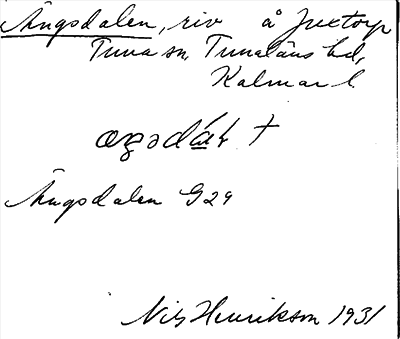 Ängsdalen, riv å Juxtorp
Tuna sn, Tunaläns hd,
Kalmar l
Ängsdalen G29
Nils Henrikson 1931